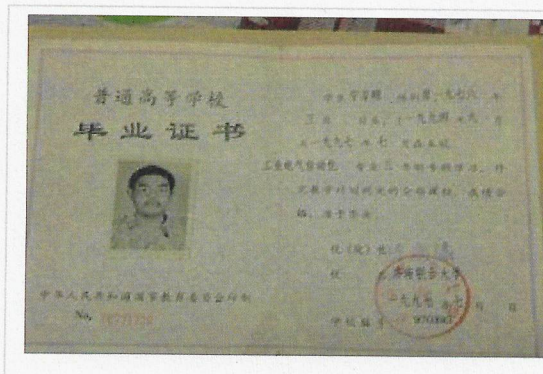 普通高等学校
毕业证书
中华人民共和国国家教育委员会印制
No.
学生 性别男,一九七六年
三月 日生,于一九九四年九月
至一九九七年七月在本校
工业电气自动化 专业三年制专科学习,修
完教学计划规定的全部课程,成绩合
格,准予毕业
校(院)长
校 联合大学
一九九七年七月 日
学校编号 970393